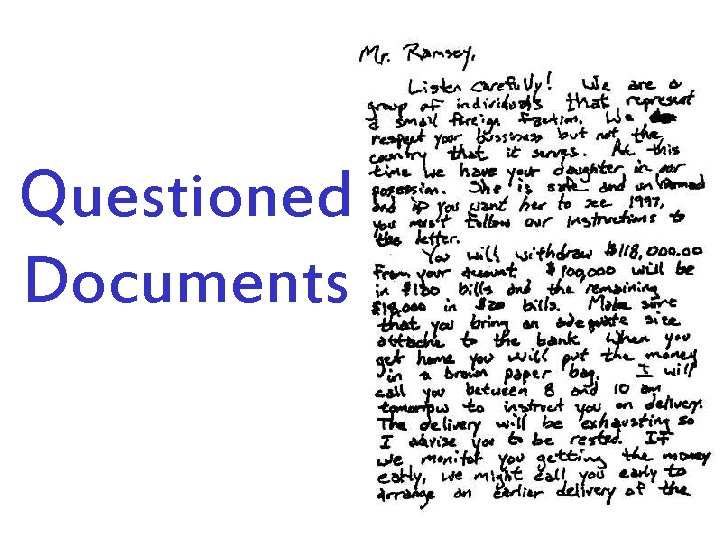 Questioned
Documents
Mr. Ramsey,
Listen carefully! We are a
group of individuals that represent
a small foreign faction. We
respect your bussiness but not the
country that it serves. At this
time we have your daughter in our
posession. She is safe and unharmed
and if you want her to see 1997,
you must follow our instructions to
the letter.
You will withdraw $118,000.00
from your account. $100,000 will be
in $100 bills and the remaining
$18,000 in $20 bills. Make sure
that you bring an adequate size
attache to the bank. When you
get home you will put the money
in a brown paper bag. I will
call you between 8 and 10 am
tomorrow to instruct you on delivery.
The delivery will be exhausting so
I advise you to be rested. If
we monitor you getting the money
early, we might call you early to
arrange an earlier delivery of the